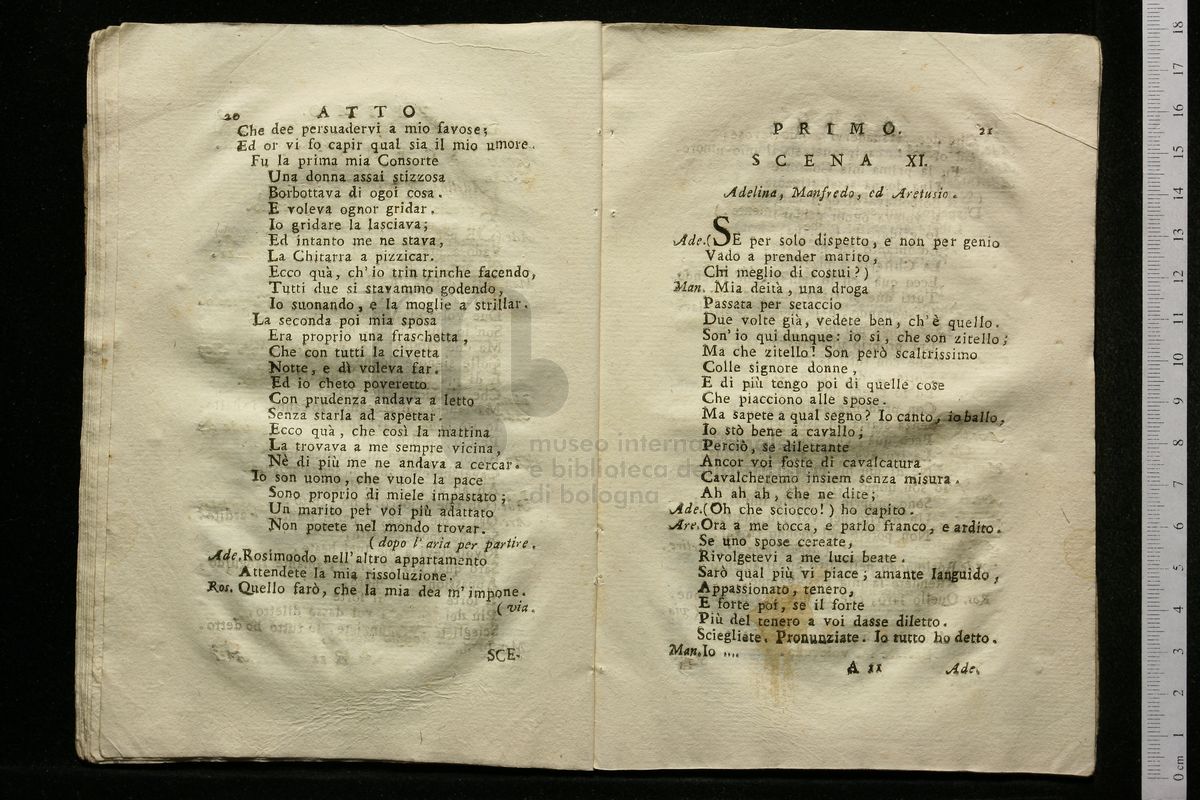 20 ATTO
Che dee persuadervi a mio favose;
Ed or vi fo capir qual sia il mio umore.
Fu la prima mia Consorte
Una donna assai stizzosa
Borbottava di ogoi cosa.
E voleva ognor gridar.
Io gridare la lasciava;
Ed intanto me ne stava,
La Chitarra a pizzicar.
Ecco quà, ch'io trin trinche facendo,
Tutti due si stavammo godendo,
Io suonando, e la moglie a strillar.
La seconda poi mia sposa
Era proprio una fraschetta,
Che con tutti la civetta
Notte, e dì voleva far.
Ed io cheto poveretto
Con prudenza andava a letto
Senza starla ad aspettar.
Ecco quà, che così la mattina
La trovava a me sempre vicina,
Nè di più me ne andava a cercar.
Io son uomo, che vuole la pace
Sono proprio di miele impastato;
Un marito per voi più adattato
Non potete nel mondo trovar.
(dopo l'aria per partire.
Ade. Rosimoodo nell'altro appartamento
Attendete la mia rissoluzione.
Ros. Quello farò, che la mia dea m'impone.
(via.
SCE-
PRIMO. 21
SCENA XI.
Adelina, Manfredo, ed Aretusio.
Ade. (SE per solo dispetto, e non per genio
Vado a prender marito,
Chi meglio di costui?)
Man. Mia deità, una droga
Passata per setaccio
Due volte già, vedete ben, ch'è quello.
Son'io qui dunque: io sì, che son zitello;
Ma che zitello! Son però scaltrissimo
Colle signore donne,
E di più tengo poi di quelle cose
Che piacciono alle spose.
Ma sapete a qual segno? Io canto, io ballo,
Io stò bene a cavallo;
Perciò, se dilettante
Ancor voi foste di cavalcatura
Cavalcheremo insiem senza misura.
Ah ah ah, che ne dite;
Ade. (Oh che sciocco!) ho capito.
Are. Ora a me tocca, e parlo franco, e ardito.
Se uno spose cercate,
Rivolgetevi a me luci beate.
Sarò qual più vi piace; amante languido,
Appassionato, tenero,
E forte poi, se il forte
Più del tenero a voi dasse diletto.
Sciegliete. Pronunziate. Io tutto ho detto.
Man. Io ....
A 11 Ade.
museo interna
e biblioteca de
di bologna
0 cm 1 2 3 4 5 6 7 8 9 10 11 12 13 14 15 16 17 18